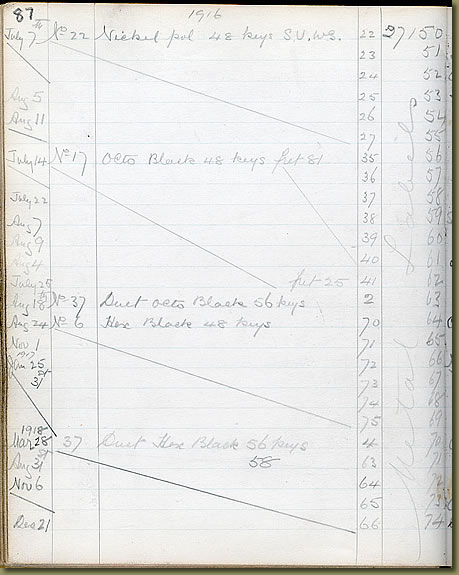 87 1916
July 7th No 22 Nickel pol 48 keys S.V.WS. 22 27150
23 51
24 52
Aug 5 25 53
Aug 11 26 54
27 55
July 14 No 17 Octo Black 48 keys fret 81 35 56
36 57
July 22 37 58
Aug 7 38 59
Aug 9 39 60
Aug 4 40 61
July 25 fret 25 41 62
Aug 18th No 37 Duet Octo Black 56 keys 2 63
Aug 24 No 6 Hex Black 48 keys 70 64
Nov 1 71 65
1917
Jan 25 72 66
31st 73 67
74 68
75 69
1918
Mar 28 37 Duet Hex Black 56 keys 4 70
Aug 31st 58 63 71
Nov 6 64 72
65 73
Dec 21 66 74
Metal